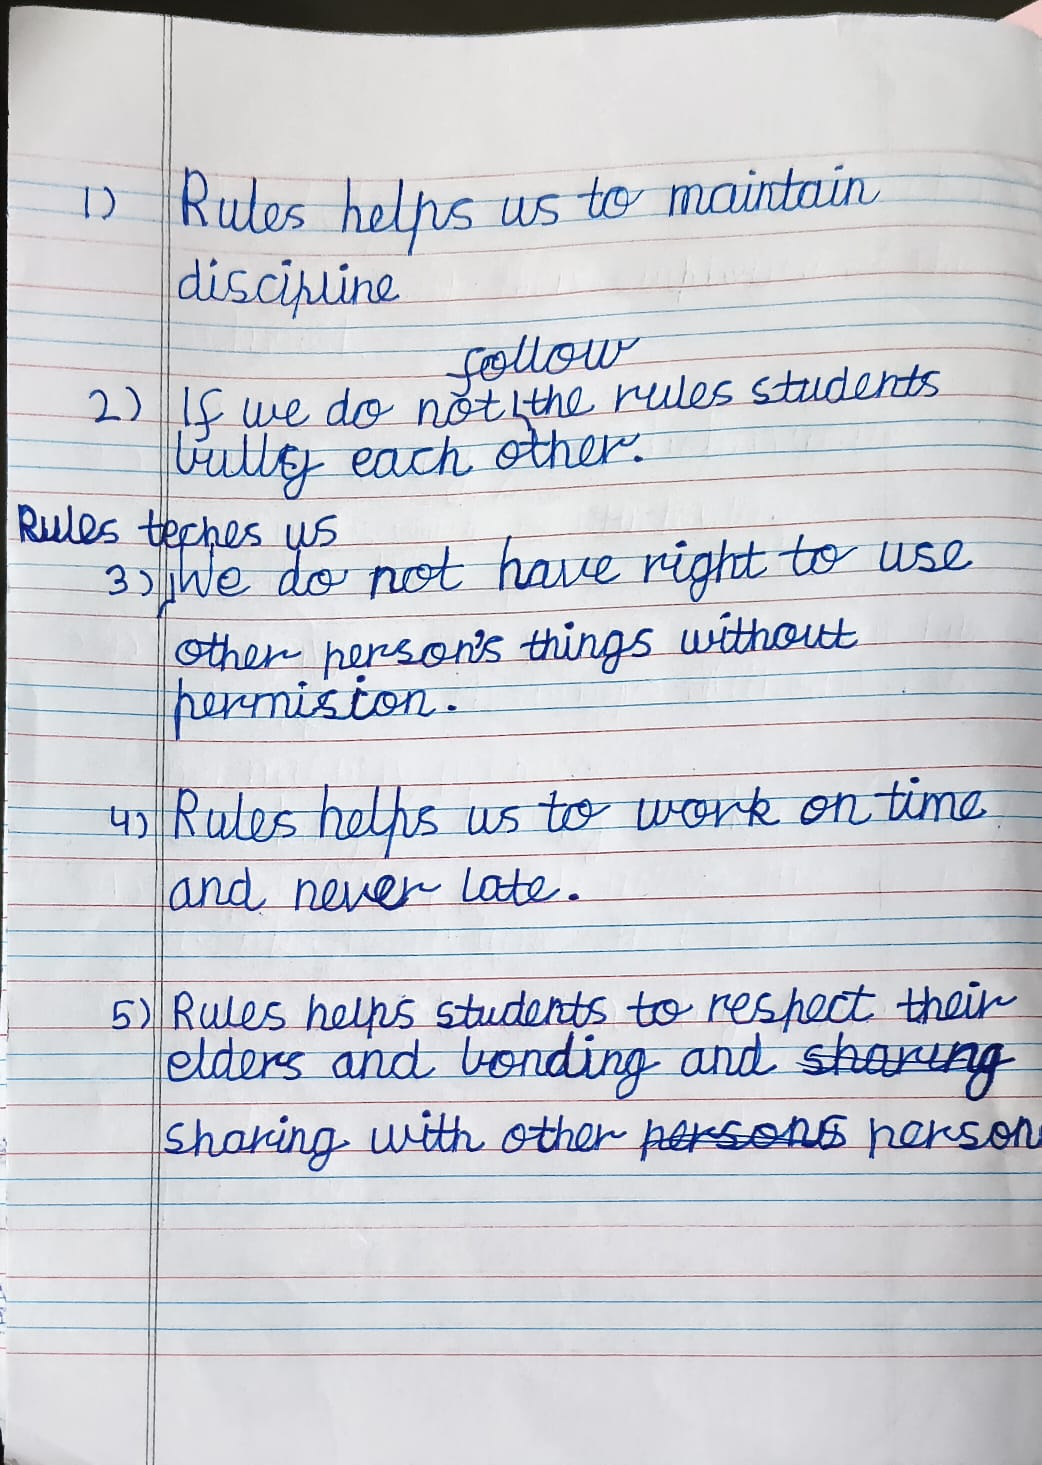 1) Rules helps us to maintain
discipline
follow
2) If we do not the rules students
bully each other.
Rules teches us
3) We do not have right to use
other person's things without
permision.
4) Rules helps us to work on time
and never late.
5) Rules helps students to respect their
elders and bonding and sharing
sharing with other persons person